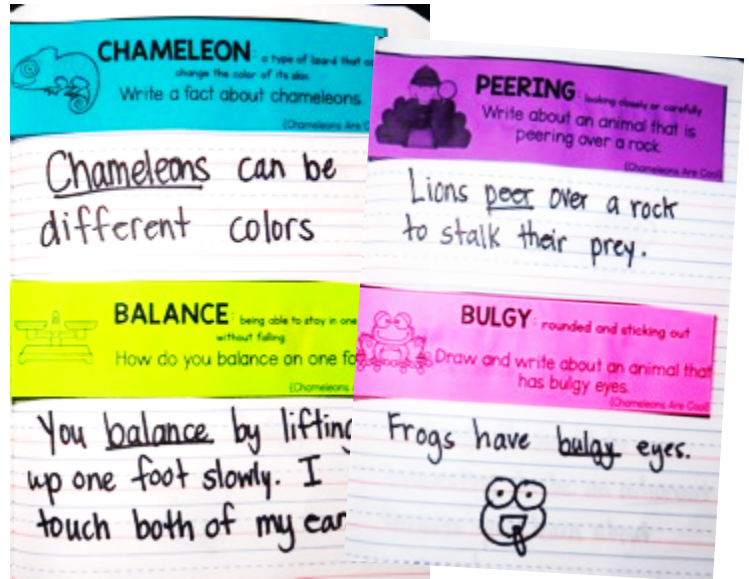 CHAMELEON: a type of lizard that
change the color of its skin
Write a fact about chameleons.
(Chameleons Are
Chameleons can be
different colors
BALANCE: being able to stay in one
without falling
How do you balance on one
(Chameleons
You balance by lifting
up one foot slowly. I
touch both of my
PEERING: looking closely or carefully
Write about an animal that is
peering over a rock.
(Chameleons Are Cool)
Lions peer over a rock
to stalk their prey.
BULGY: rounded and sticking out
Draw and write about an animal that
has bulgy eyes.
(Chameleons Are Cool)
Frogs have bulgy eyes.